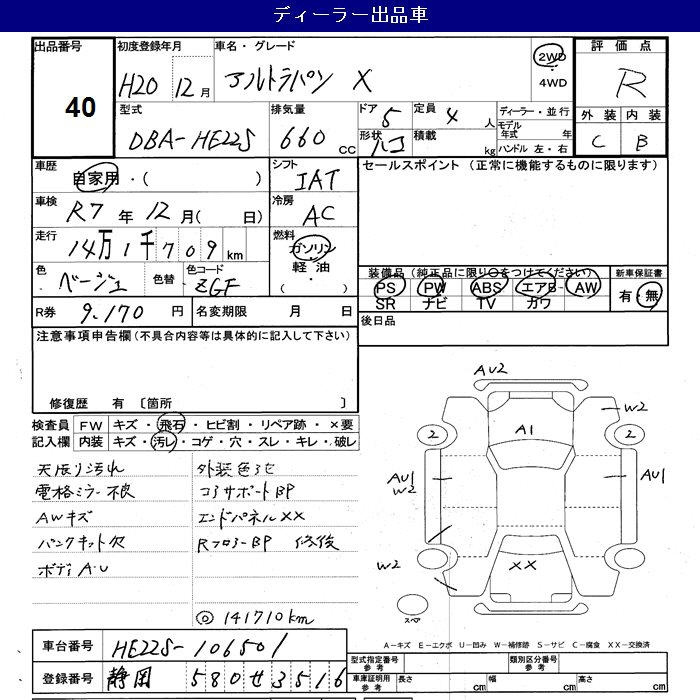 ディーラー出品車
出品番号 40
初度登録年月 H20 12月
車名・グレード アルトラパン X
2WD
4WD
評価点 R
外装 内装
C B
型式 DBA-HE22S
排気量 660 CC
ドア 5
定員 4 人
形状 ハコ
積載 kg
ディーラー・並行
モデル年式 年
ハンドル 左・右
車歴 自家用・( )
シフト IAT
車検 R7年 12月( 日)
冷房 AC
走行 14万1千709km
燃料 ガソリン
軽油・
( )
色 ベージュ
色替
色コード ZGF
R券 9.170 円
名変期限 月 日
セールスポイント (正常に機能するものに限ります)
装備品(純正品に限り○をつけてください)
新車保証書
PS PW ABS エアB AW
SR ナビ TV カワ
有・無
後日品
注意事項申告欄(不具合内容等は具体的に記入して下さい)
修復歴 有 〔箇所 〕
検査員記入欄
FW キズ・飛石・ヒビ割・リペア跡・×要
内装 キズ・汚し・コゲ・穴・スレ・キレ・破レ
天張り汚れ
電格ミラー不良
AWキズ
パンクキット欠
ボディA・U
外装色アセ
コアサポートBP
エンドパネルXX
RフロアーBP 修復
◎141710km
AU2
A1
W2
2
2
AU1
W2
AU1
W2
XX
スペア
A-キズ E-エクボ U-凹み W-補修跡 S-サビ C-腐食 XX-交換済
車台番号 HE22S-106501
登録番号 静岡 580 せ 3516
型式指定番号 参考
類別区分番号 参考
車庫証明用 参考
長さ cm
幅 cm
高さ cm